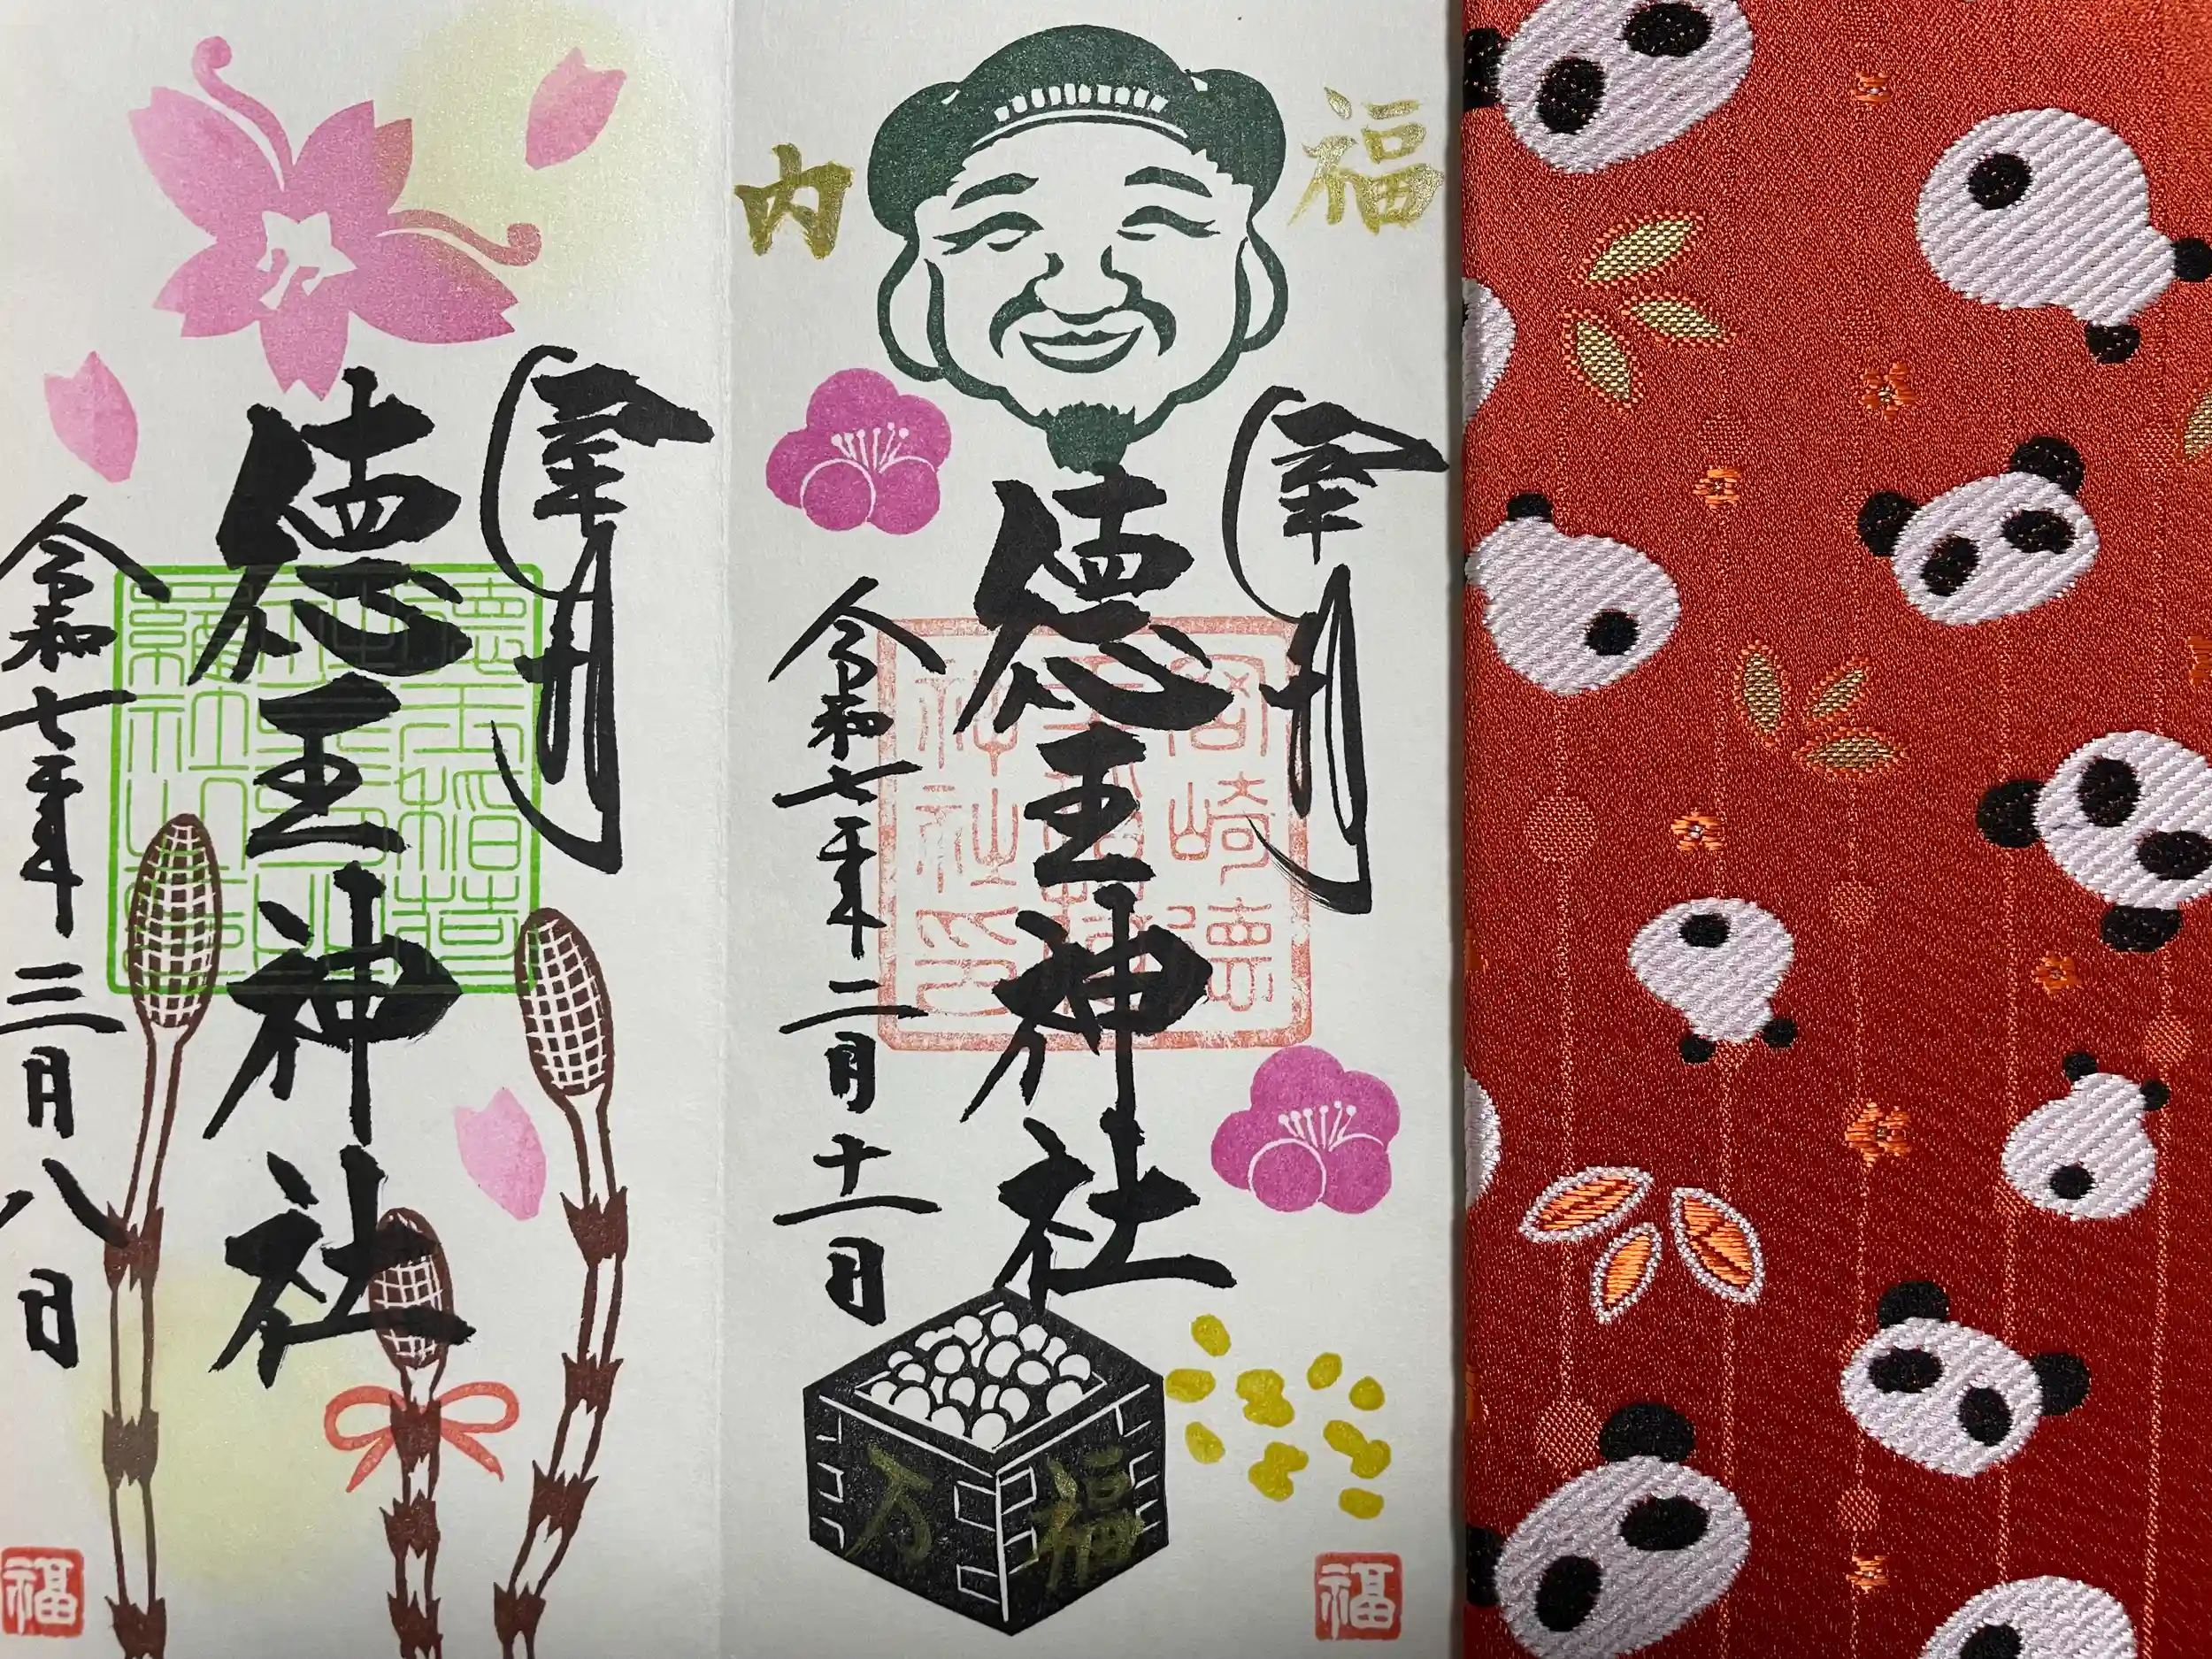 福
内
奉拝
徳王神社
令和七年二月十一日
万福
福
奉拝
徳王神社
令和七年三月八日
福